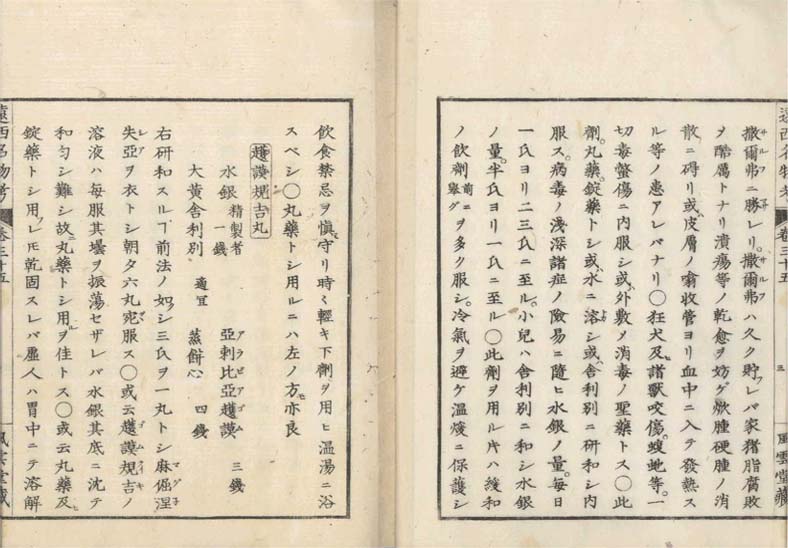 遠西名物考
卷三十五
三
風雲堂藏
撒爾弗ニ勝レリ。撒爾弗ハ久ク貯フレバ家猪脂腐敗
ヲ酷厲トナリ潰瘍等ノ乾愈ヲ妨グ焮腫硬腫ノ消
散ニ碍リ或ハ皮膚ノ翕收管ヨリ血中ニ入テ發熱ス
ル等ノ患アレバナリ〇狂犬及ビ諸獸咬傷。蝮虵等。一
切毒螫傷ニ内服シ或ハ外敷〆消毒ノ聖藥トス〇此
劑。丸藥。錠藥トシ或ハ水ニ溶シ或ハ舎利別ニ研和シ内
服ス。病毒ノ淺深諸症ノ險易ニ隨ヒ水銀ノ量。毎日
一氏ヨリ二三氏ニ至ル。小兒ハ舎利別ニ和シ水銀
ノ量。半氏ヨリ一氏ニ至ル〇此劑ヲ用ル片ハ緩和
ノ飲劑前ニ舉グヲ多ク服シ。冷氣ヲ避ケ温煖ニ保護シ
飲食禁忌ヲ愼守リ時々輕キ下劑ヲ用ヒ温湯ニ浴
スベシ〇丸藥トシ用ルニハ左ノ方亦良
趨謨規吉丸
水銀 精製者 一錢 亞剌比亞趨謨 三錢
大黃舎利別 適宜 蒸餅心 四錢
右研和スルヿ前法ノ如シ三氏ヲ一丸トシ麻倔涅
失亞ヲ衣トシ朝夕六丸宛服ス〇或云趨謨規吉ノ
溶液ハ毎服其壜ヲ振蕩セザレバ水銀其底ニ沈テ
和匀シ難シ故ニ丸藥トシ用フルヲ佳トス〇或云丸藥及ビ
錠藥トシ用フレ𪜈乾固スレバ虛人ハ胃中ニテ溶解
遠西名物考
卷三十五
風雲堂藏